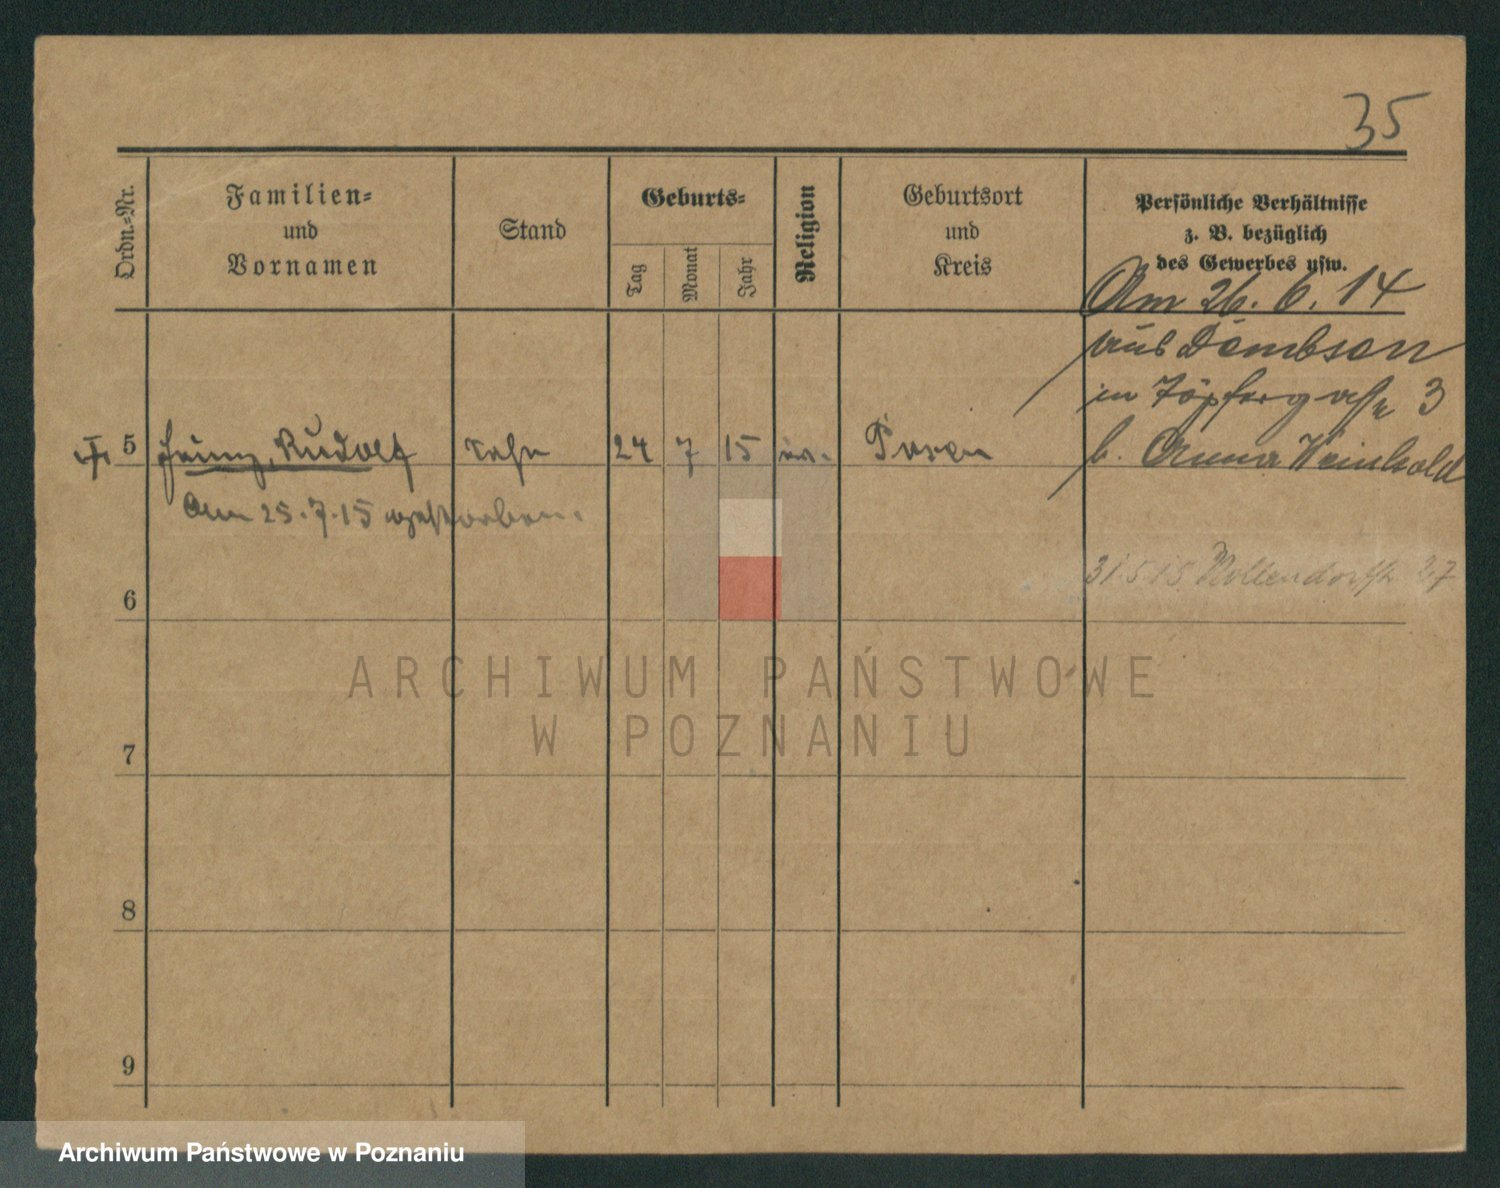 35
Ordn.-Nr.
Familien-
und
Vornamen
Stand
Geburts-
Tag
Monat
Jahr
Religion
Geburtsort
und
Kreis
Persönliche Verhältnisse
z. B. bezüglich
des Gewerbes usw.
Am 26. 6. 14
aus Dombsen
in Töpfergasse 3
b. Anna Weinhold
5 Heinz, Rudolf Sohn 24 7 15 ev. Posen
Am 25.7.15 gestorben.
31.5.15 27
6
ARCHIWUM PAŃSTWOWE
W POZNANIU
7
8
9
Archiwum Państwowe w Poznaniu